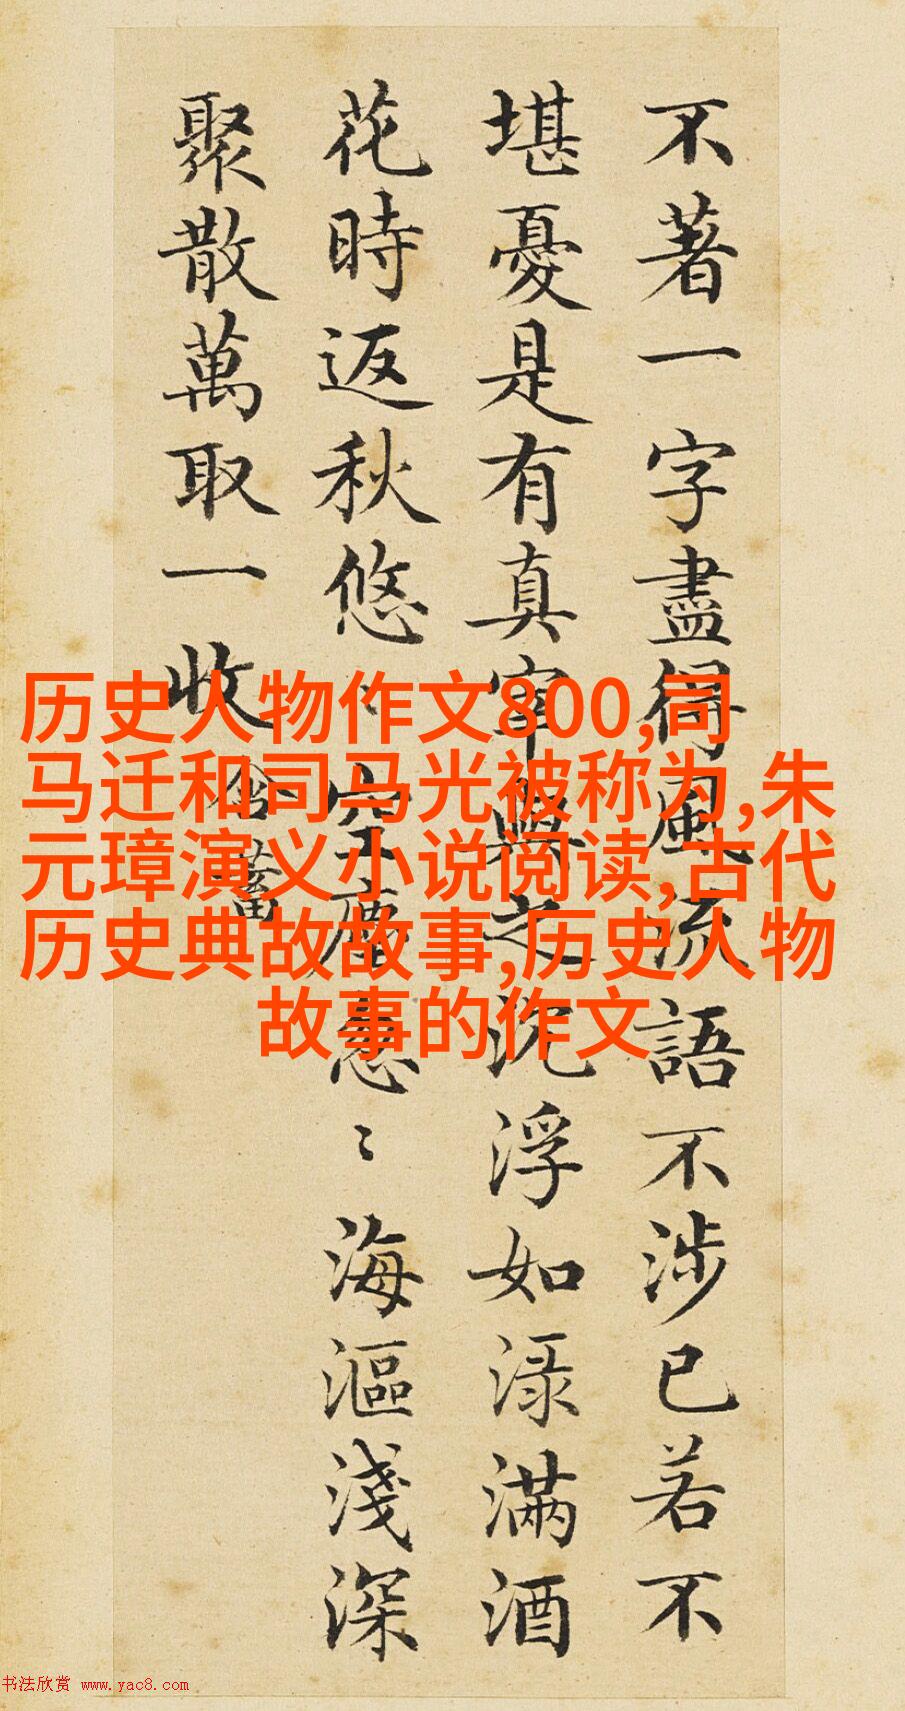 不著一字盡得風流語不涉已若不
堪憂是有真宰與之沉浮如淥滿酒
花時返秋悠〻空塵忽〻海漚淺深
聚散萬取一收 含蓄
历史人物作文800,司
马迁和司马光被称为,朱
元璋演义小说阅读,古代
历史典故故事,历史人物
故事的作文
书法欣赏 www.yac8.com